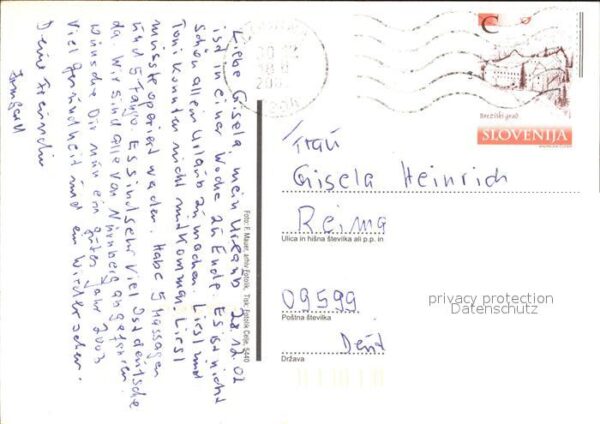 Liebe Gisela, mein Urlaub 28.12.02
ist in einer Woche zu Ende. Es ist nicht
schön allein Urlaub zu machen. Liesl und
Toni konnten nicht mitkommen. Liesl
musste operiert werden. Habe 5 Massagen
und 5 Fango. Es sind sehr viel Ostdeutsche
da. Wir sind alle von Nürnberg abgefahren.
Wünsche Dir nun ein gutes Jahr 2003
viel Gesundheit und ein Wiedersehen.
Deine Freundin
Irmgard
Foto: F. Mauer, arhiv Fotolik, Tisk: Fotolik Celje, 5440
C
Brežiški grad
SLOVENIJA
Frau
Gisela Heinrich
Ulica in hišna številka ali p.p. in
09599
Poštna številka
Država
privacy protection
Datenschutz